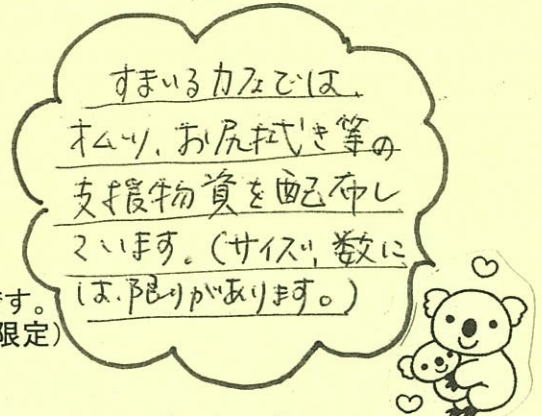 すまいるカフェでは、
オムツ、お尻拭き等の
支援物資を配布し
ています。(サイズ、数に
は、限りがあります。)
です。
限定)